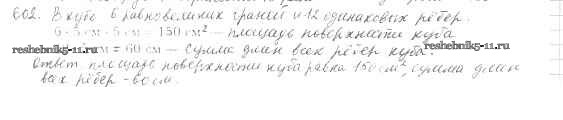 602. В кубе 6 равновеликих граней и 12 одинаковых рёбер.
6 · 5 см · 5 см = 150 см² – площадь поверхности куба
reshebnik5-11.ru см = 60 см – сумма длин всех рёбер куба. reshebnik5-11.ru
Ответ площадь поверхности куба равна 150 см², сумма длин
всех рёбер – 60 см.